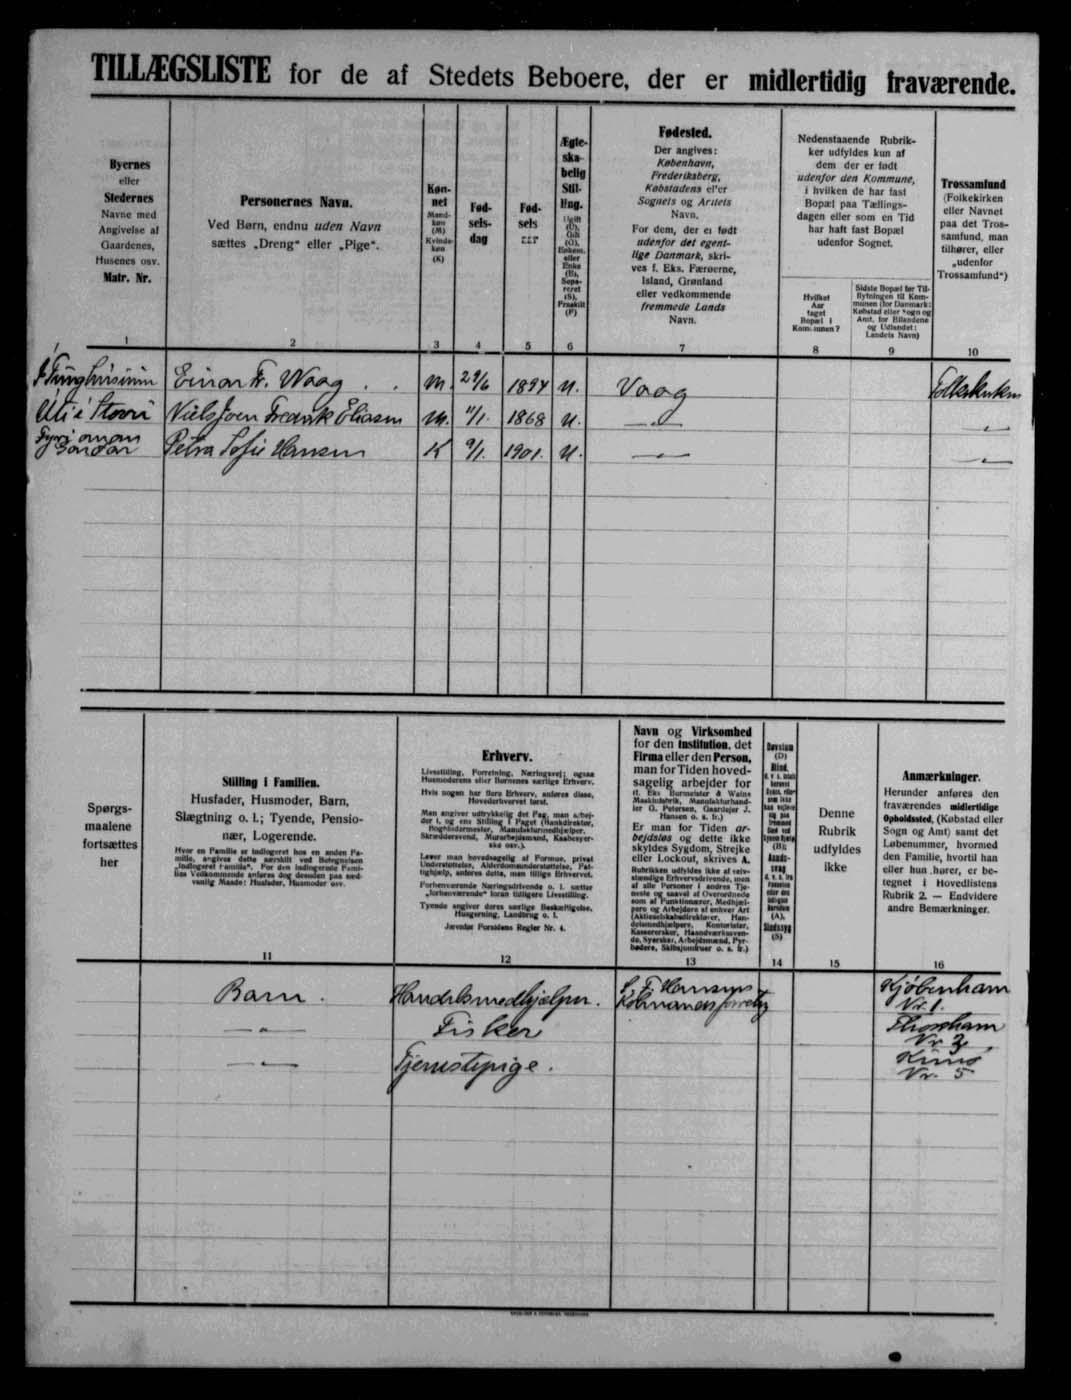 TILLÆGSLISTE for de af Stedets Beboere, der er midlertidig fraværende.
Byernes
eller
Stedernes
Navne med
Angivelse af
Gaardenes,
Husenes osv.
Matr. Nr.
Personernes Navn.
Ved Børn, endnu uden Navn
sættes „Dreng“ eller „Pige“.
Køn-
net
Mand-
køn
(M)
Kvinde-
køn
(K)
Fød-
sels-
dag
Fød-
sels
Ægte-
ska-
belig
Stil-
ling.
Ugift
(U),
Gift
(G),
Enkem.
eller
Enke
(E),
Sepa-
reret
(S),
Fraskilt
(F)
Fødested.
Der angives:
København,
Frederiksberg,
Købstadens eller
Sognets og Amtets
Navn.
For dem, der er født
udenfor det egent-
lige Danmark, skri-
ves f. Eks. Færøerne,
Island, Grønland
eller vedkommende
fremmede Lands
Navn.
Nedenstaaende Rubrik-
ker udfyldes kun af
dem der er født
udenfor den Kommune,
i hvilken de har fast
Bopæl paa Tællings-
dagen eller som en Tid
har haft fast Bopæl
udenfor Sognet.
Hvilket
Aar
taget
Bopæl i
Kommunen?
Sidste Bopæl før Til-
flytningen til Kom-
munen (for Danmark:
Købstad eller Sogn og
Amt, for Bilandene
og Udlandet:
Landets Navn)
Trossamfund
(Folkekirken
eller Navnet
paa det Tros-
samfund, man
tilhører, eller
„udenfor
Trossamfund“)
1 2 3 4 5 6 7 8 9 10
Einar Fr. Waag . . M. 29/6 1894 U. Vaag Folkekirken
Niels Joen Fredrik Eliasen M. 11/1. 1868 U. —"— —"—
Petra Sofie Hansen K 9/1. 1901. U. —"— —"—
Spørgs-
maalene
fortsættes
her
Stilling i Familien.
Husfader, Husmoder, Barn,
Slægtning o. l.; Tyende, Pensio-
nær, Logerende.
Hvor en Familie er indlogeret hos en anden Fa-
milie, angives dette særskilt ved Betegnelsen
„indlogeret Familie“. For den indlogerede Fami-
lies Vedkommende anføres dog desuden paa sæd-
vanlig Maade: Husfader, Husmoder osv.
Erhverv.
Livsstilling, Forretning, Næringsvej; ogsaa
Husmoderens eller Børnenes særlige Erhverv.
Hvis nogen har flere Erhverv, anføres disse,
Hovederhvervet først.
Man angiver udtrykkelig det Fag, man arbej-
der i, og ens Stilling i Faget (Bankdirektør,
Bogbindermester, Manufakturmedhjælper,
Skræddersvend, Murarbejdsmand, Kaabesyer-
ske osv.).
Lever man hovedsagelig af Formue, privat
Understøttelse, Alderdomsunderstøttelse, Fat-
tighjælp, anføres dette, men tillige Erhvervet.
Forhenværende Næringsdrivende o. l. sætter
„forhenværende“ foran tidligere Livsstilling.
Tyende angiver deres særlige Beskæftigelse,
Husgerning, Landbrug o. l.
Jævnfør Forsidens Regler Nr. 4.
Navn og Virksomhed
for den Institution, det
Firma eller den Person,
man for Tiden hoved-
sagelig arbejder for
(f. Eks Burmeister & Wains
Maskinfabrik, Manufakturhand-
ler G. Petersen, Gaardejer J.
Hansen o. s. fr.)
Er man for Tiden ar-
bejdsløs og dette ikke
skyldes Sygdom, Strejke
eller Lockout, skrives A.
Rubrikken udfyldes ikke af selv-
stændige Erhvervsdrivende, men
af alle Personer i andres Tje-
neste og saavel af Overordnede
som af Funktionærer, Medhjæl-
pere og Arbejdere af enhver Art
(Aktieselskabsdirektører, Han-
delsmedhjælpere, Kontorister,
Kassererske, Haandværkssven-
de, Syersker, Arbejdsmænd, Fyr-
bødere, Skibsjomfruer o. s. fr.)
Døvstum
(D)
Blind,
(B)
Aands-
svag
(A),
Sindssyg
(S)
Denne
Rubrik
udfyldes
ikke
Anmærkninger.
Herunder anføres den
fraværendes midlertidige
Opholdssted, (Købstad eller
Sogn og Amt) samt det
Løbenummer, hvormed
den Familie, hvortil han
eller hun hører, er be-
tegnet i Hovedlistens
Rubrik 2. — Endvidere
andre Bemærkninger.
11 12 13 14 15 16
Barn . Handelsmedhjælper. Kjøbenham
Nr. 1.
—"— Fisker
—"— Tjenestepige .
Nr. 5